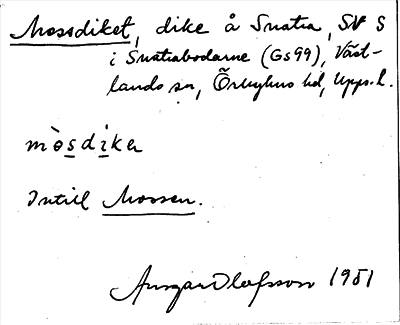 Mossdiket, dike å Snatra, SV S
i Snatrabodarne (Gs99), Väst-
lands sn, Örbyhus hd, Upps. l.
mòsdiker
Intill Mossen.
Ansgar Olofsson 1951